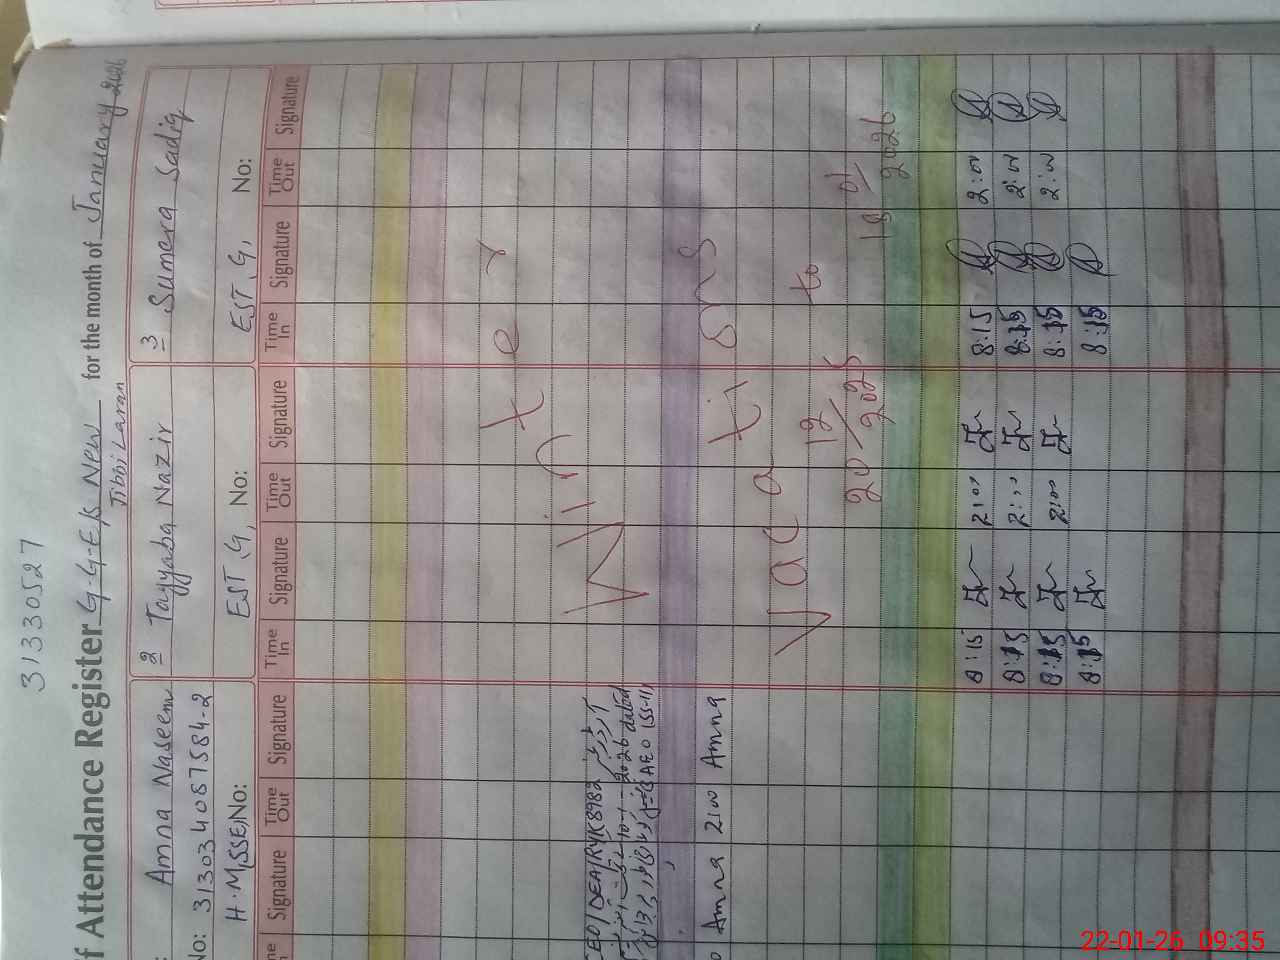 31330527
f Attendance Register G-G-E/S New for the month of January 2026
Jibbi Laran
Amna Naseem
2 Tayyaba Nazir
3 Sumera Sadiq
No: 31303 4087584-2
H.M(SSE) No:
EST, G, No:
EST, G, No:
Signature Time Out Signature
Time In Signature Time Out Signature
Time In Signature Time Out Signature
Winter
CEO/DEA/RYK8982
2026 dated
AEO
Amna 2:00 Amna
Vacations
20/12/2025 to 18/01/2026
8:15 2:00 8:15 2:00
8:15 2:00 8:15 2:00
8:15 2:00 8:15 2:00
8:15 8:15
22-01-26 09:35